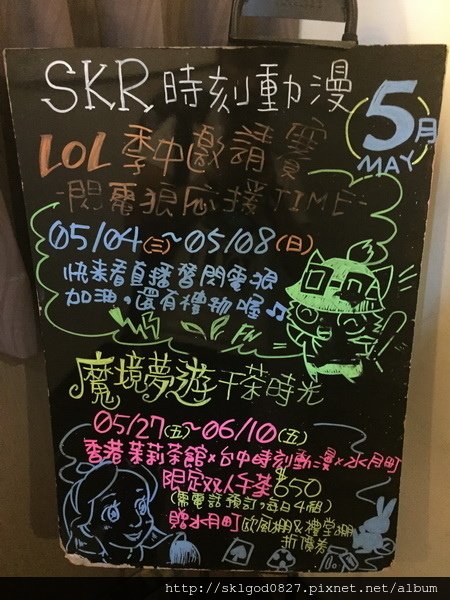 SKR 時刻動漫
5月
MAY
LOL 季中邀請賽
-閃電狼応援TIME-
05/04(三)~05/08(日)
快來看直播替閃電狼
加油。還有禮物喔♫
FW
魔境夢遊 下茶時光
05/27(五)~06/10(五)
香港茉莉茶館×台中時刻動漫×水月町
限定双人下午茶 $650
(需電話預訂,每日4組)
贈水月町歐風棚&禮堂棚
折價券
http://sklgod0827.pixnet.net/album